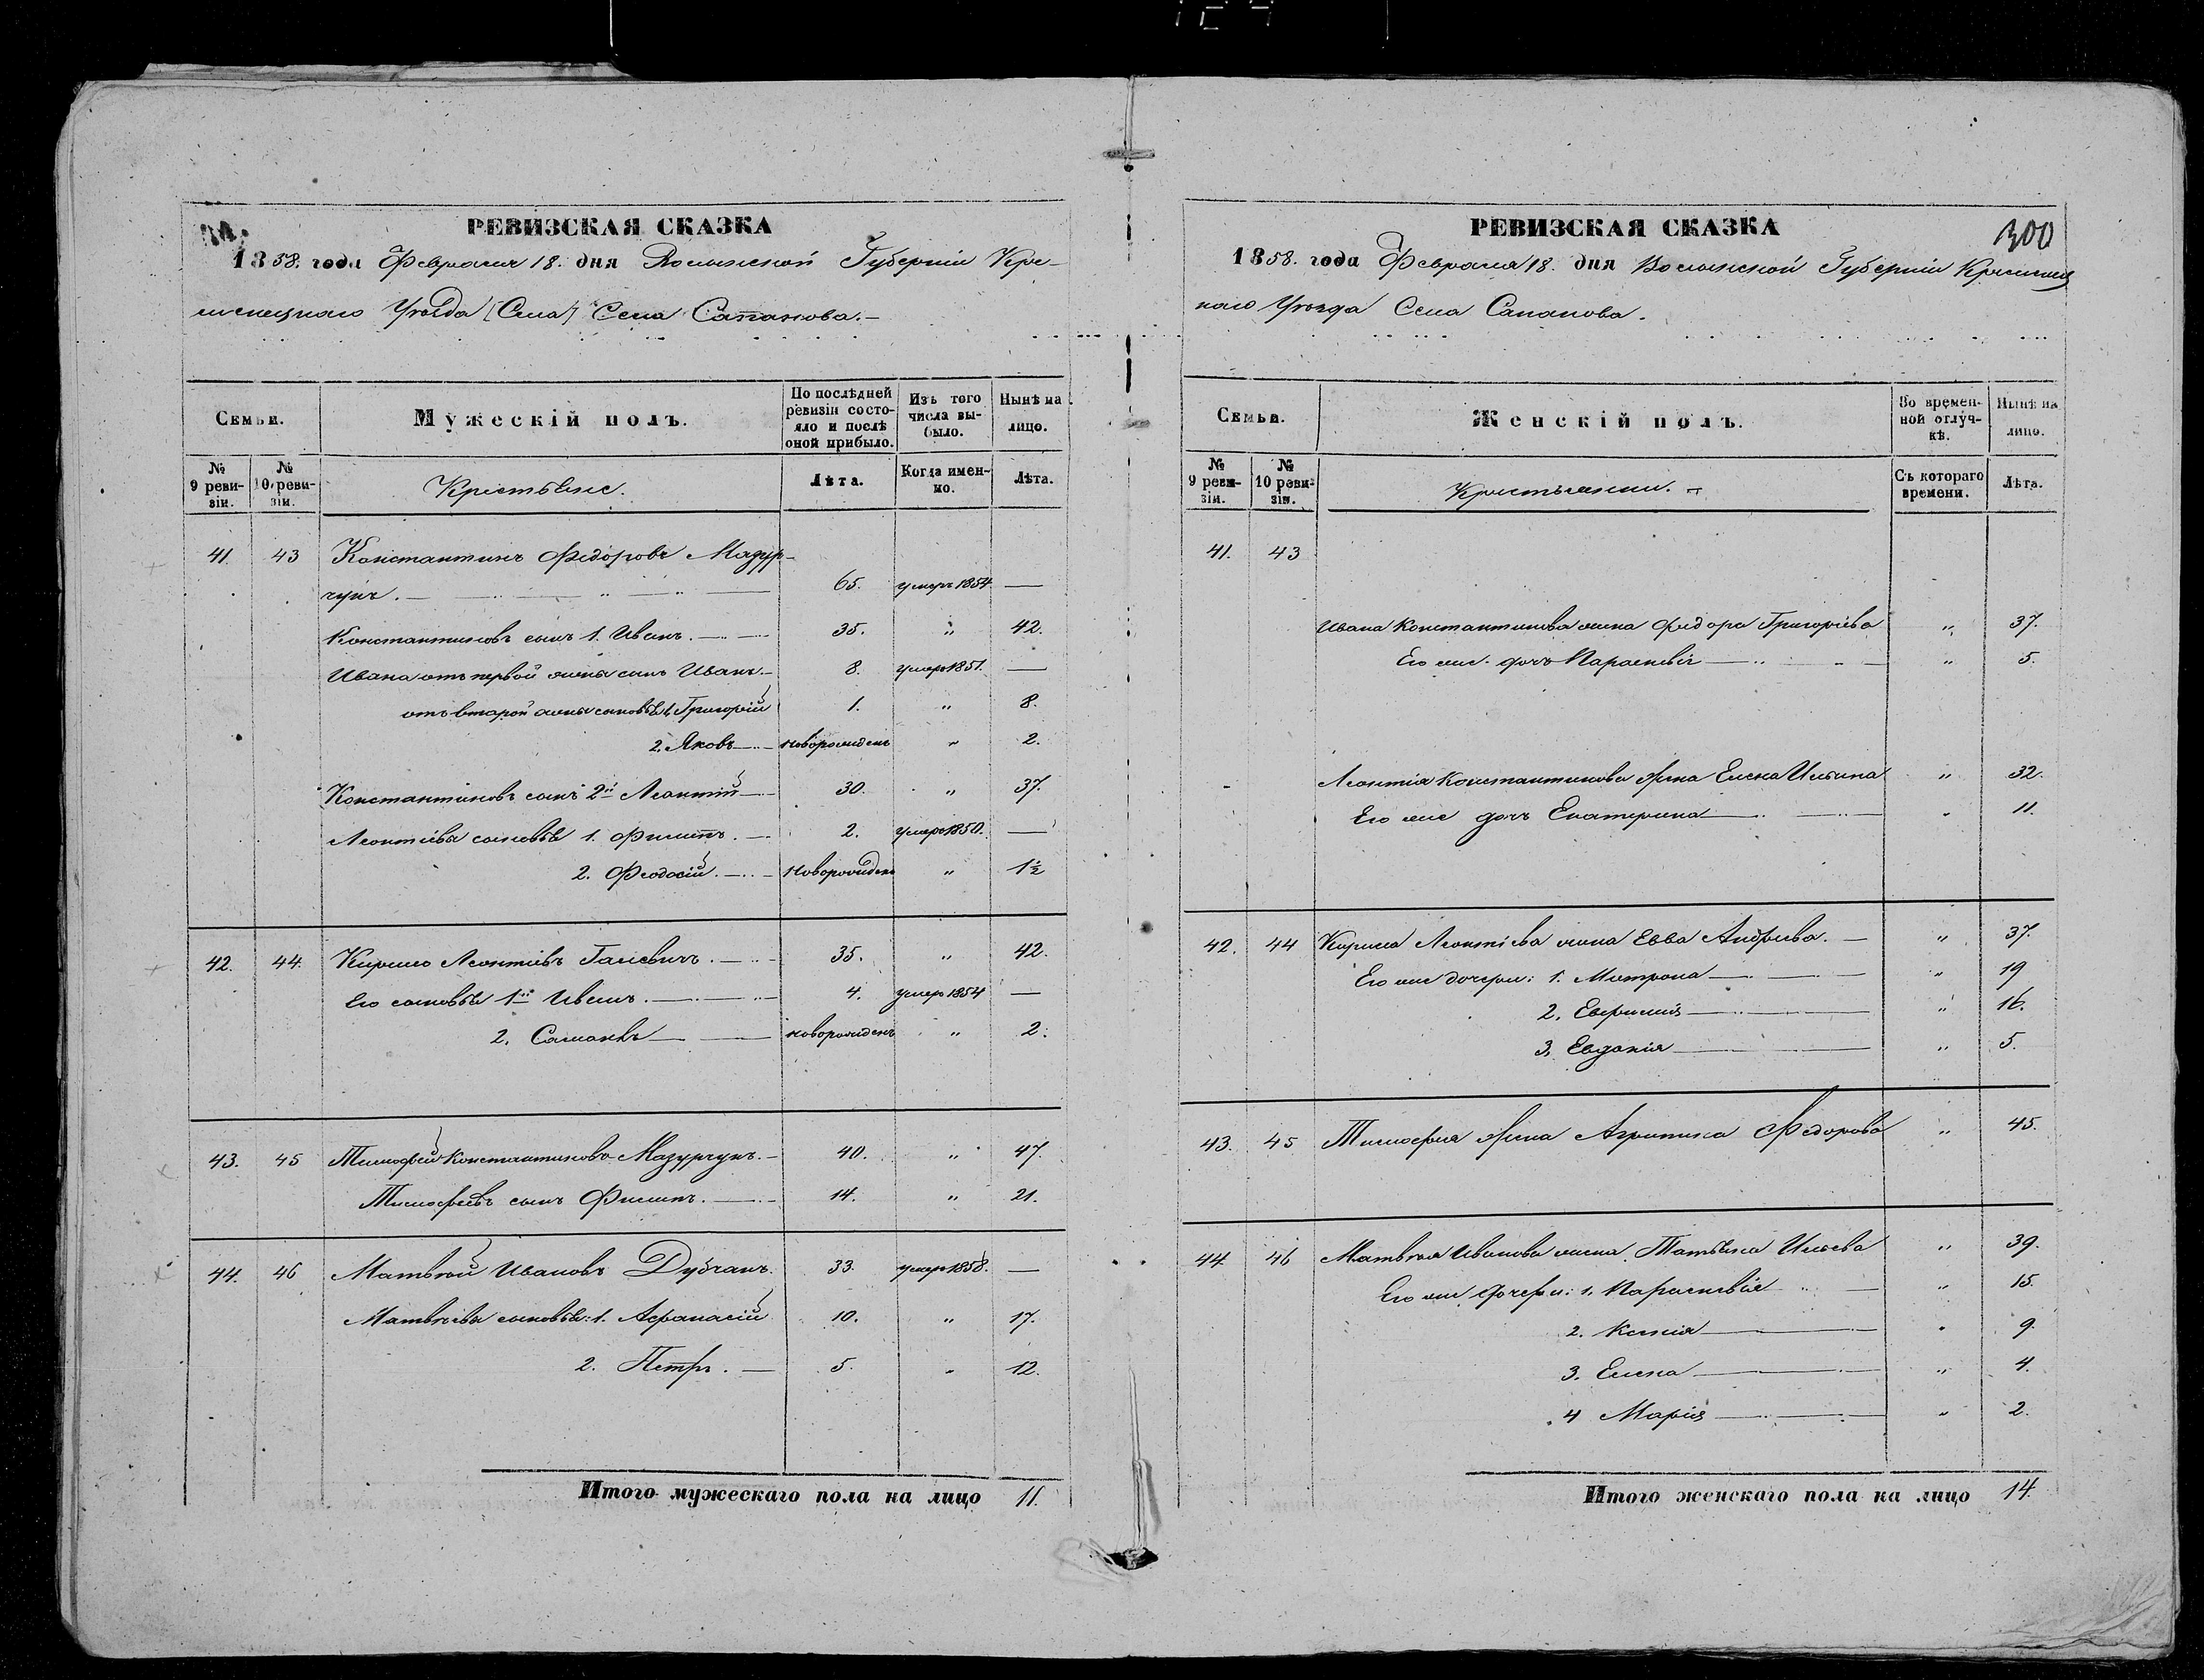 РЕВИЗСКАЯ СКАЗКА
1858. года Февраля 18. дня Волынской Губерніи Кре-
менецкаго Уѣзда [Села] Села Сапанова.—
Семьи.
Мужескій полъ.
По послѣдней ревизіи состояло и послѣ оной прибыло.
Изъ того числа выбыло.
Нынѣ на лицо.
№ 9 ревизіи.
№ 10 ревизіи.
Крестьяне.
Лѣта.
Когда именно.
Лѣта.
41. 43 Константинъ Федоровъ Мазур-
чукъ. — 65. умеръ 1854 —
Константиновъ сынъ 1. Иванъ. — 35. " 42.
Ивана отъ первой жены сынъ Иванъ. — 8. умеръ 1851. —
отъ второй жены сыновья 1. Григорій 1. " 8.
2. Яковъ — новорожденъ " 2.
Константиновъ сынъ 2й Леонтій — 30. " 37.
Леонтіевы сыновья 1. Филипъ. — 2. умеръ 1850. —
2. Феодосій. — новорожденъ " 1½
42. 44. Кирило Леонтіевъ Галевичъ. — 35. " 42.
Его сыновья 1й Иванъ. — 4. умеръ 1854 —
2. Самоилъ — новорожденъ " 2.
43. 45 Тимофей Константиновъ Мазурчукъ. — 40. " 47.
Тимофеевъ сынъ Филипъ. — 14. " 21.
44. 46 Матвѣй Ивановъ Дубчакъ. 33. умеръ 1858. —
Матвѣевы сыновья: 1. Афанасій 10. " 17.
2. Петръ. — 5. " 12.
Итого мужескаго пола на лицо 11.
РЕВИЗСКАЯ СКАЗКА
300
1858. года Февраля 18. дня Волынской Губерніи Кременец
каго Уѣзда Села Сапанова.
Семьи.
Женскій полъ.
Во временной отлучкѣ.
Нынѣ на лицо.
№ 9 ревизіи.
№ 10 ревизіи.
Крестьянки. —
Съ котораго времени.
Лѣта.
41. 43
Ивана Константинова жена Федора Григоріева " 37.
Его же дочь Параскевія — " 5.
Леонтія Константинова жена Елена Ильина " 32.
Его же дочь Екатерина — " 11.
42. 44 Кирила Леонтіева жена Евва Андреева. — " 37.
Его же дочери: 1. Матрона — " 19
2. Евфимія — " 16.
3. Евдокія — " 5.
43. 45 Тимофея жена Агрипина Федорова " 45.
44. 46 Матвѣя Иванова жена Татьяна Ильева " 39.
Его же дочери: 1. Параскевія — " 15.
2. Ксенія — " 9.
3. Елена — " 4.
4 Марія — " 2.
Итого женскаго пола на лицо 14.